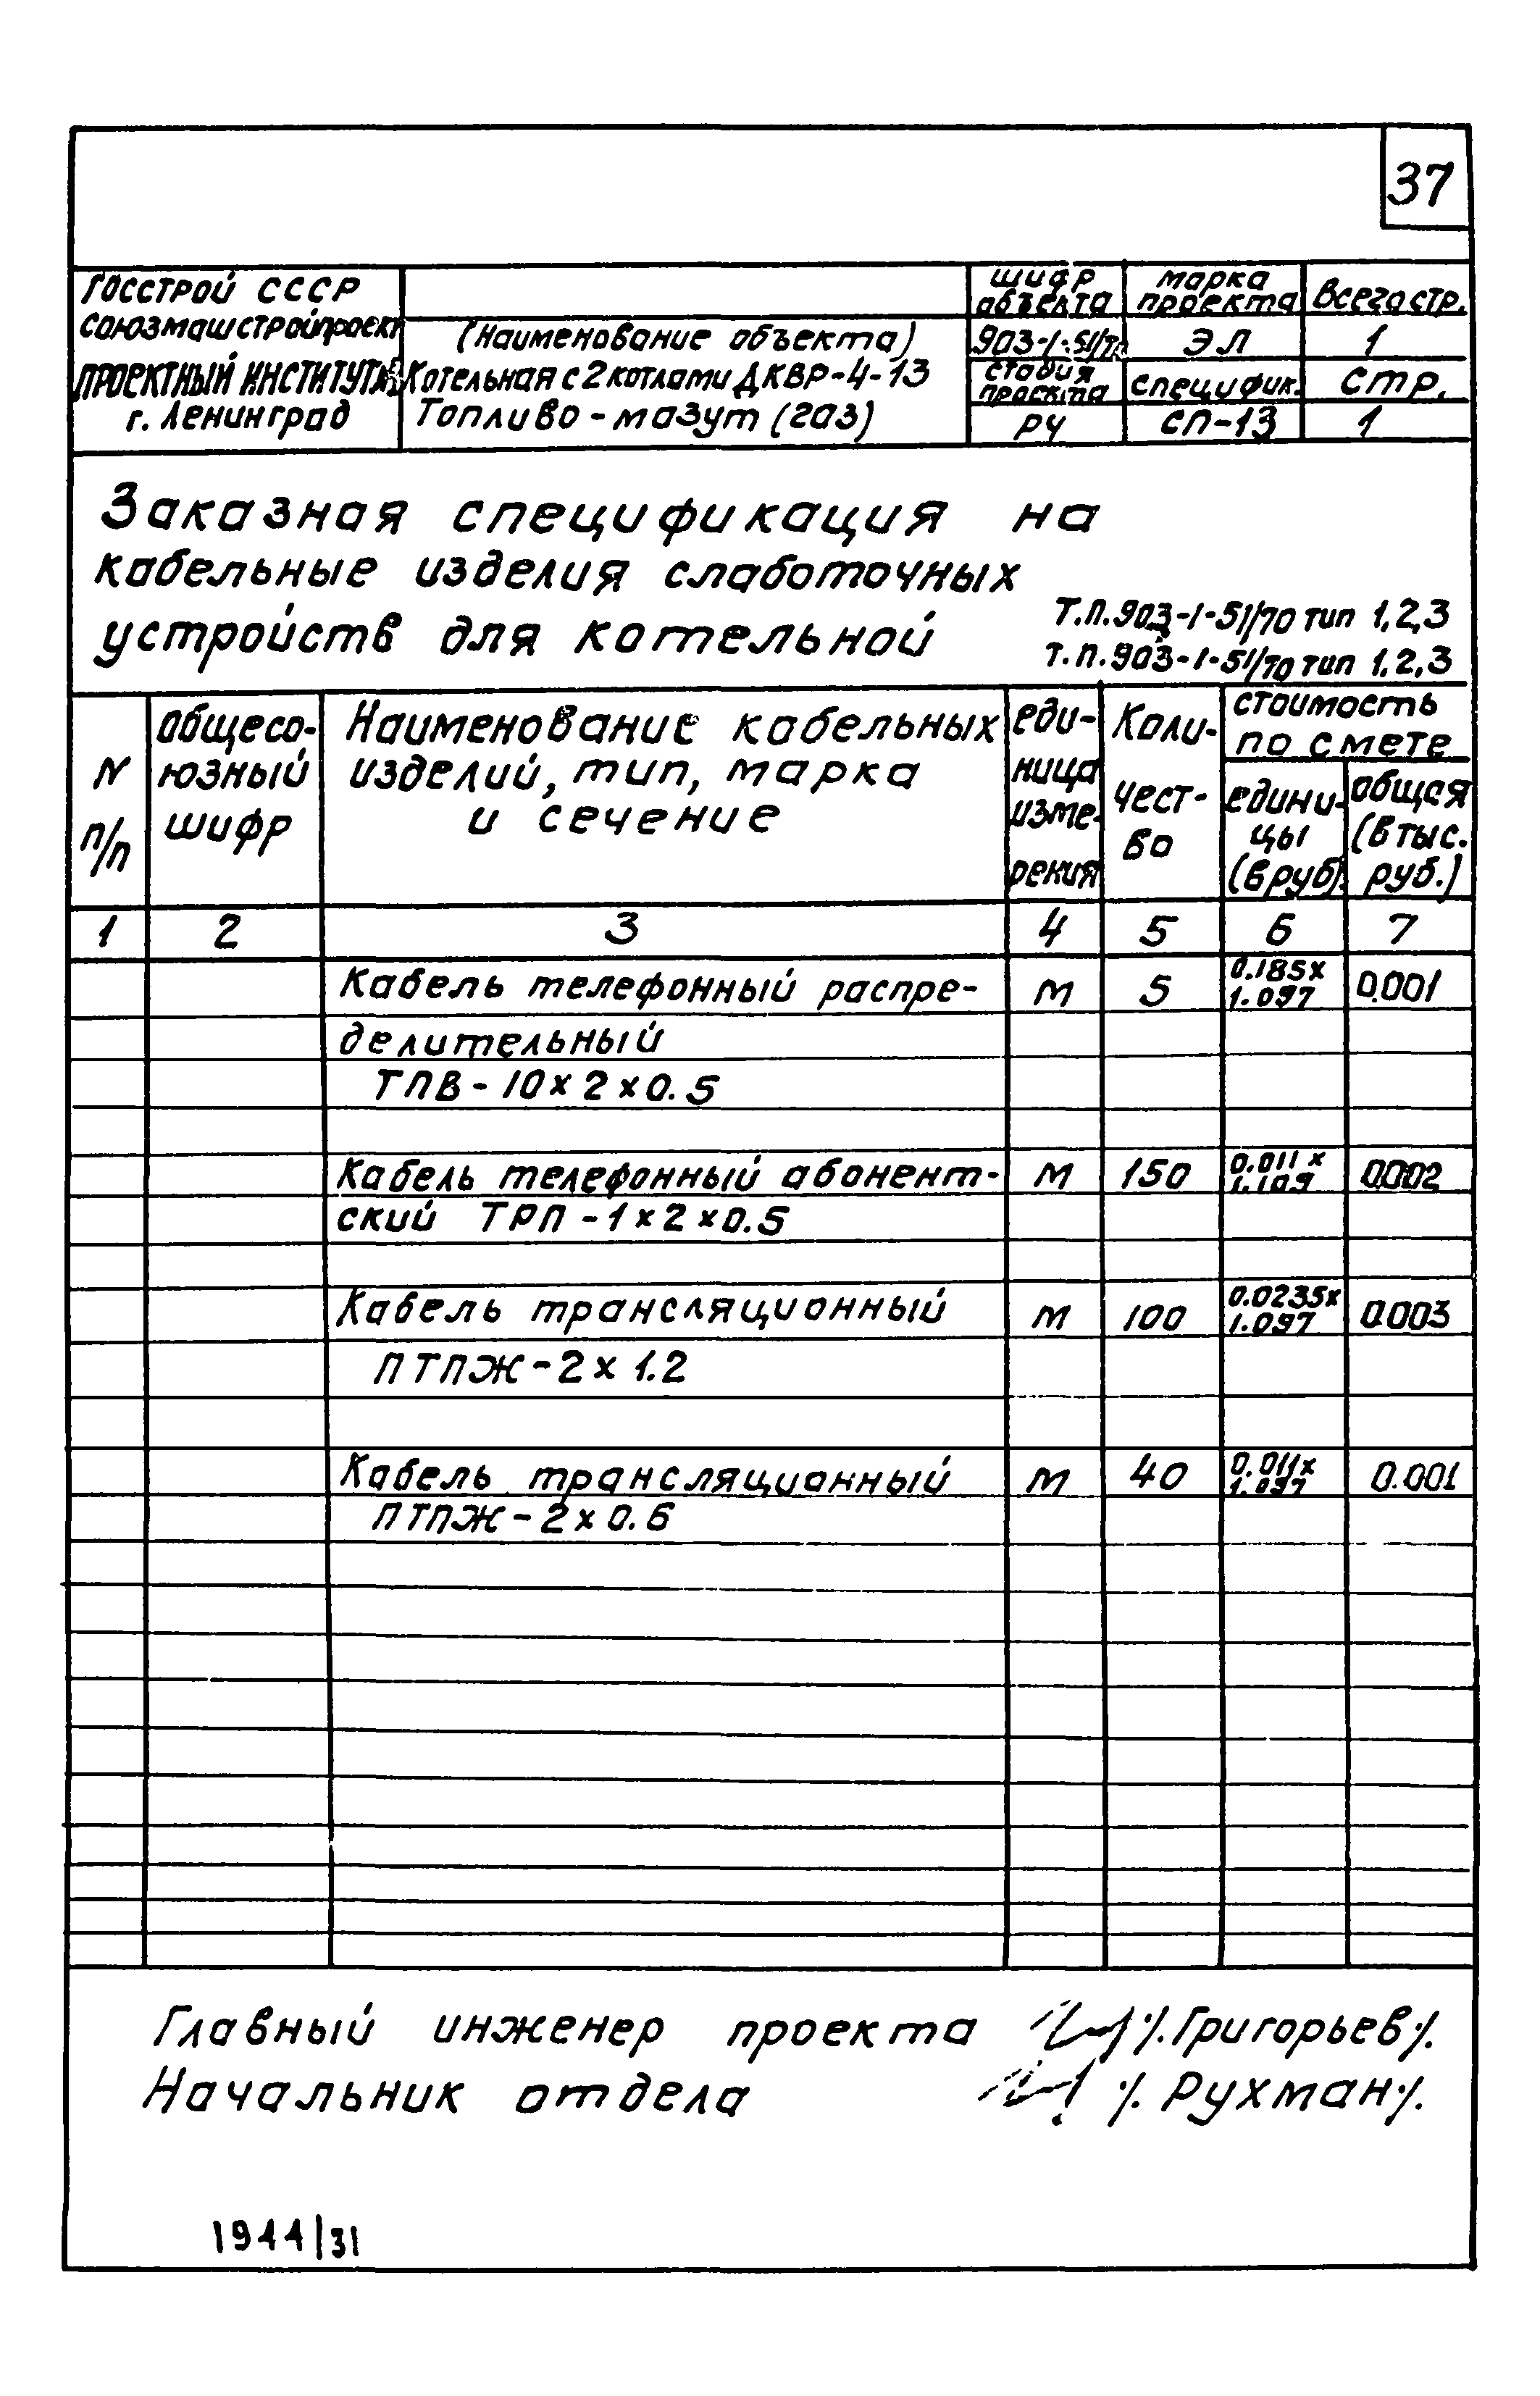 37
ГОССТРОЙ СССР
СОЮЗМАШСТРОЙПРОЕКТ
ПРОЕКТНЫЙ ИНСТИТУТ
г. Ленинград
(Наименование объекта)
Котельная с 2 котлами ДКВР-4-13
Топливо - мазут (газ)
шифр объекта
марка проекта
Всего стр.
903-1-51/70
ЭЛ
1
стадия проекта
специфик.
стр.
РЧ
СП-13
1
Заказная спецификация на
кабельные изделия слаботочных
устройств для котельной
Т.П.903-1-51/70 тип 1,2,3
Т.П.903-1-51/70 тип 1,2,3
N п/п
общесо-
юзный
шифр
Наименование кабельных
изделий, тип, марка
и сечение
еди-
ница
изме-
рения
Коли-
чест-
во
стоимость
по смете
едини-
цы
(в руб).
общая
(в тыс.
руб.)
1 2 3 4 5 6 7
Кабель телефонный распре- м 5 0.185х 1.097 0.001
делительный
ТПВ - 10 х 2 х 0.5
Кабель телефонный абонент- м 150 0.011 х 1.109 0.002
ский ТРП - 1 х 2 х 0.5
Кабель трансляционный м 100 0.0235х 1.097 0.003
ПТПЖ - 2 х 1.2
Кабель трансляционный м 40 0.011х 1.097 0.001
ПТПЖ - 2 х 0.6
Главный инженер проекта ./. Григорьев ./.
Начальник отдела ./. Рухман ./.
1944/31